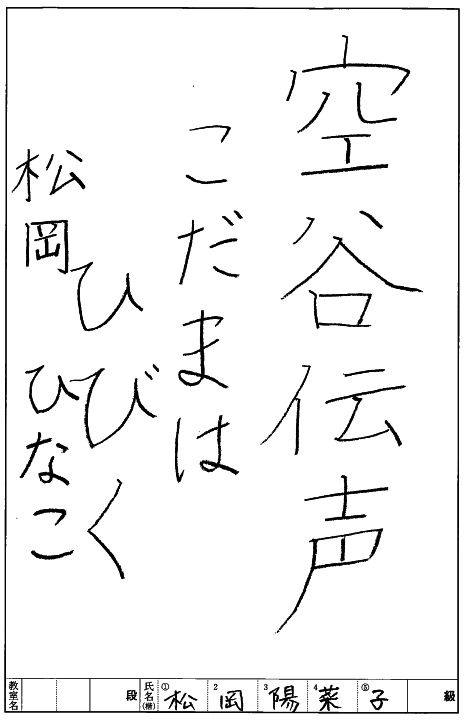 空谷伝声
こだまは
ひびく
松岡ひなこ
教室名 段 氏名(楷) ①松 2岡 3陽 4菜 ⑤子 級